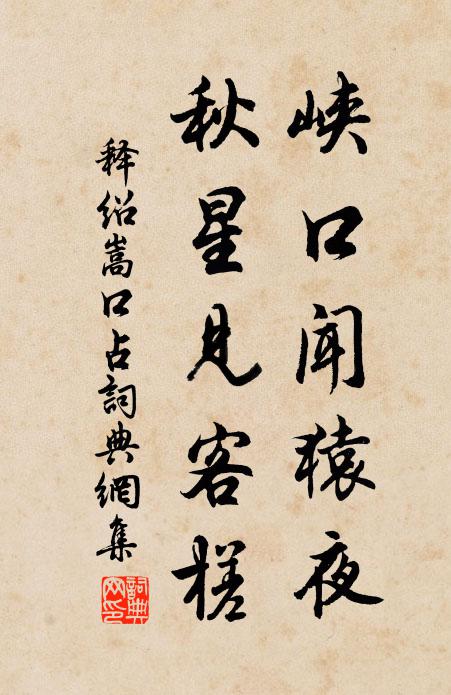 峡口闻猿夜
秋星見客槎
释绍嵩口占詞典網集
詞典网印